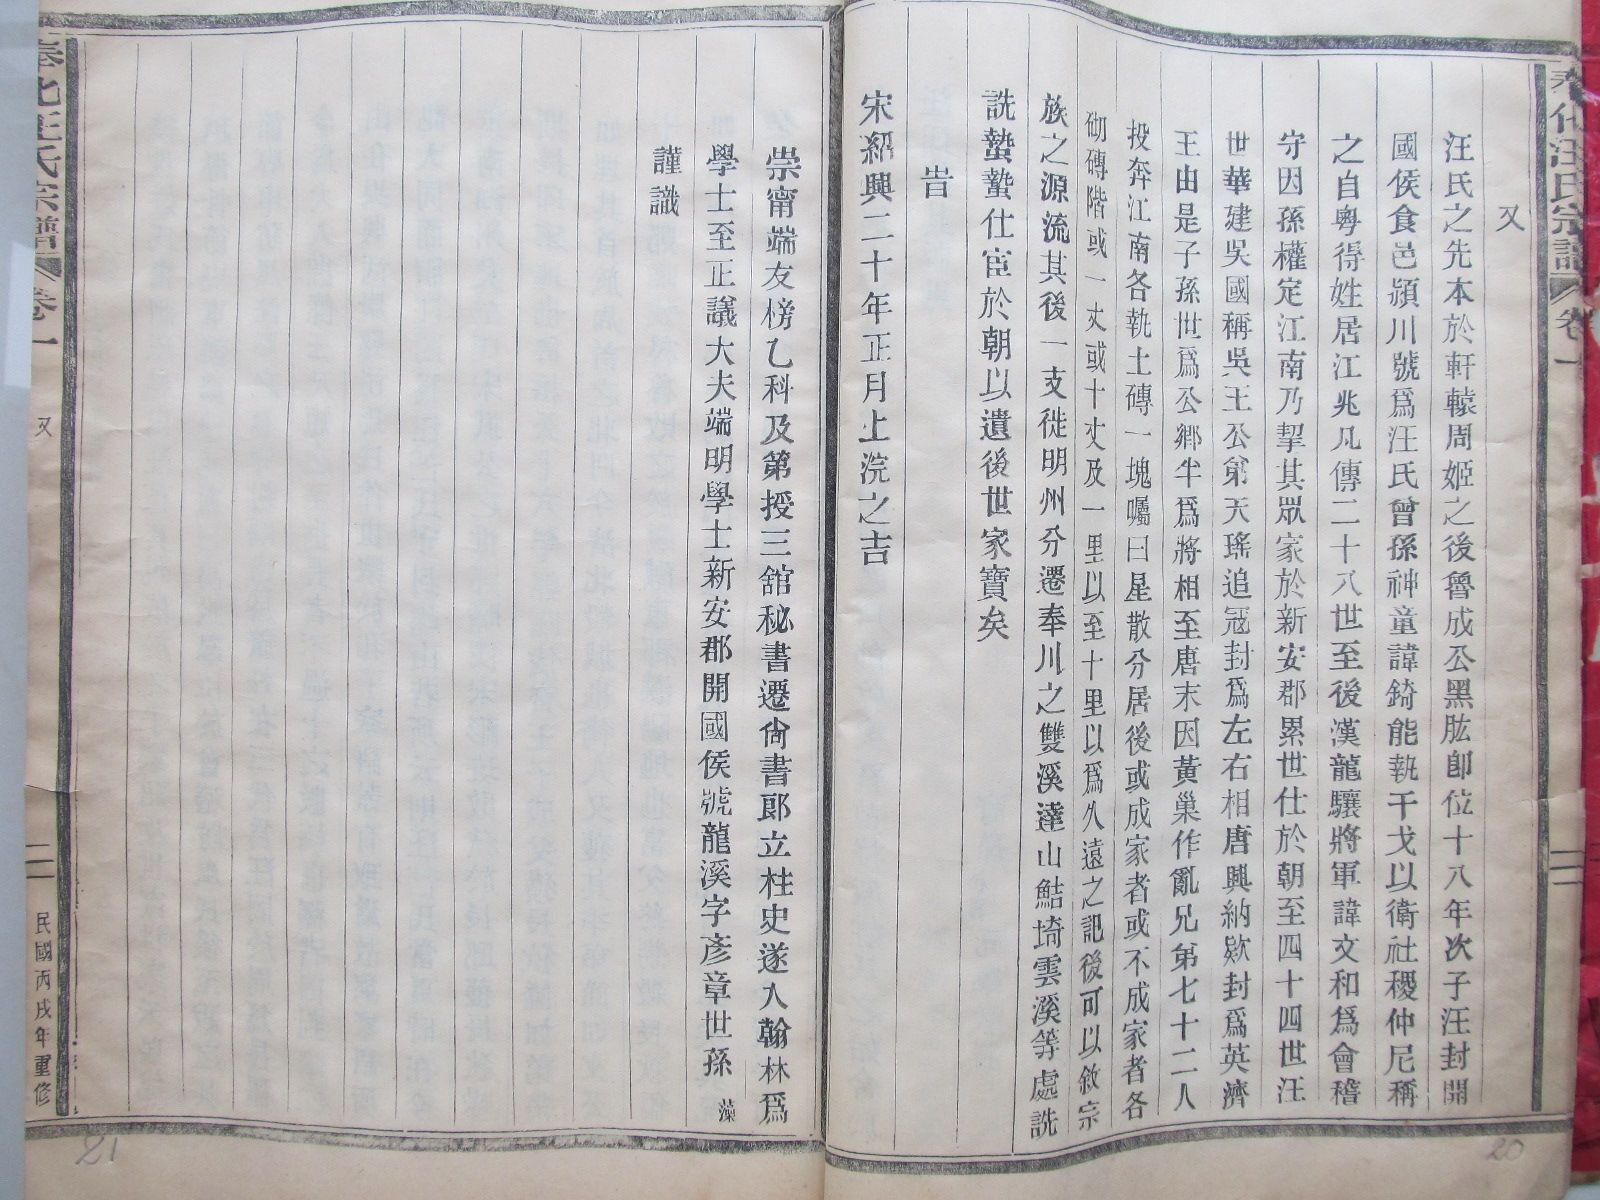 奉化汪氏宗譜 卷一
又
汪氏之先本於軒轅周姬之後魯成公黑肱卽位十八年次子汪封開
國侯食邑潁川號爲汪氏曾孫神童諱錡能執干戈以衛社稷仲尼稱
之自粵得姓居江兆凡傳二十八世至後漢龍驤將軍諱文和爲會稽
守因孫權定江南乃挈其眾家於新安郡累世仕於朝至四十四世汪
世華建吳國稱吳王公弟天瑤追冦封爲左右相唐興納欵封爲英濟
王由是子孫世爲公鄉半爲將相至唐末因黃巢作亂兄第七十二人
投奔江南各執土磚一塊囑曰星散分居後或成家者或不成家者各
砌磚階或一丈或十丈及一里以至十里以爲久遠之記後可以敘宗
族之源流其後一支徙明州分遷奉川之雙溪達山鮚埼雲溪等處詵
詵蟄蟄仕宦於朝以遺後世家寶矣
旹
宋紹興二十年正月上浣之吉
崇甯端友榜乙科及第授三舘秘書遷尙書郎立柱史遂入翰林爲
學士至正議大夫端明學士新安郡開國侯號龍溪字彥章世孫 藻
謹識
奉化汪氏宗譜 卷一 又 二 民國丙戌年重修
20
21